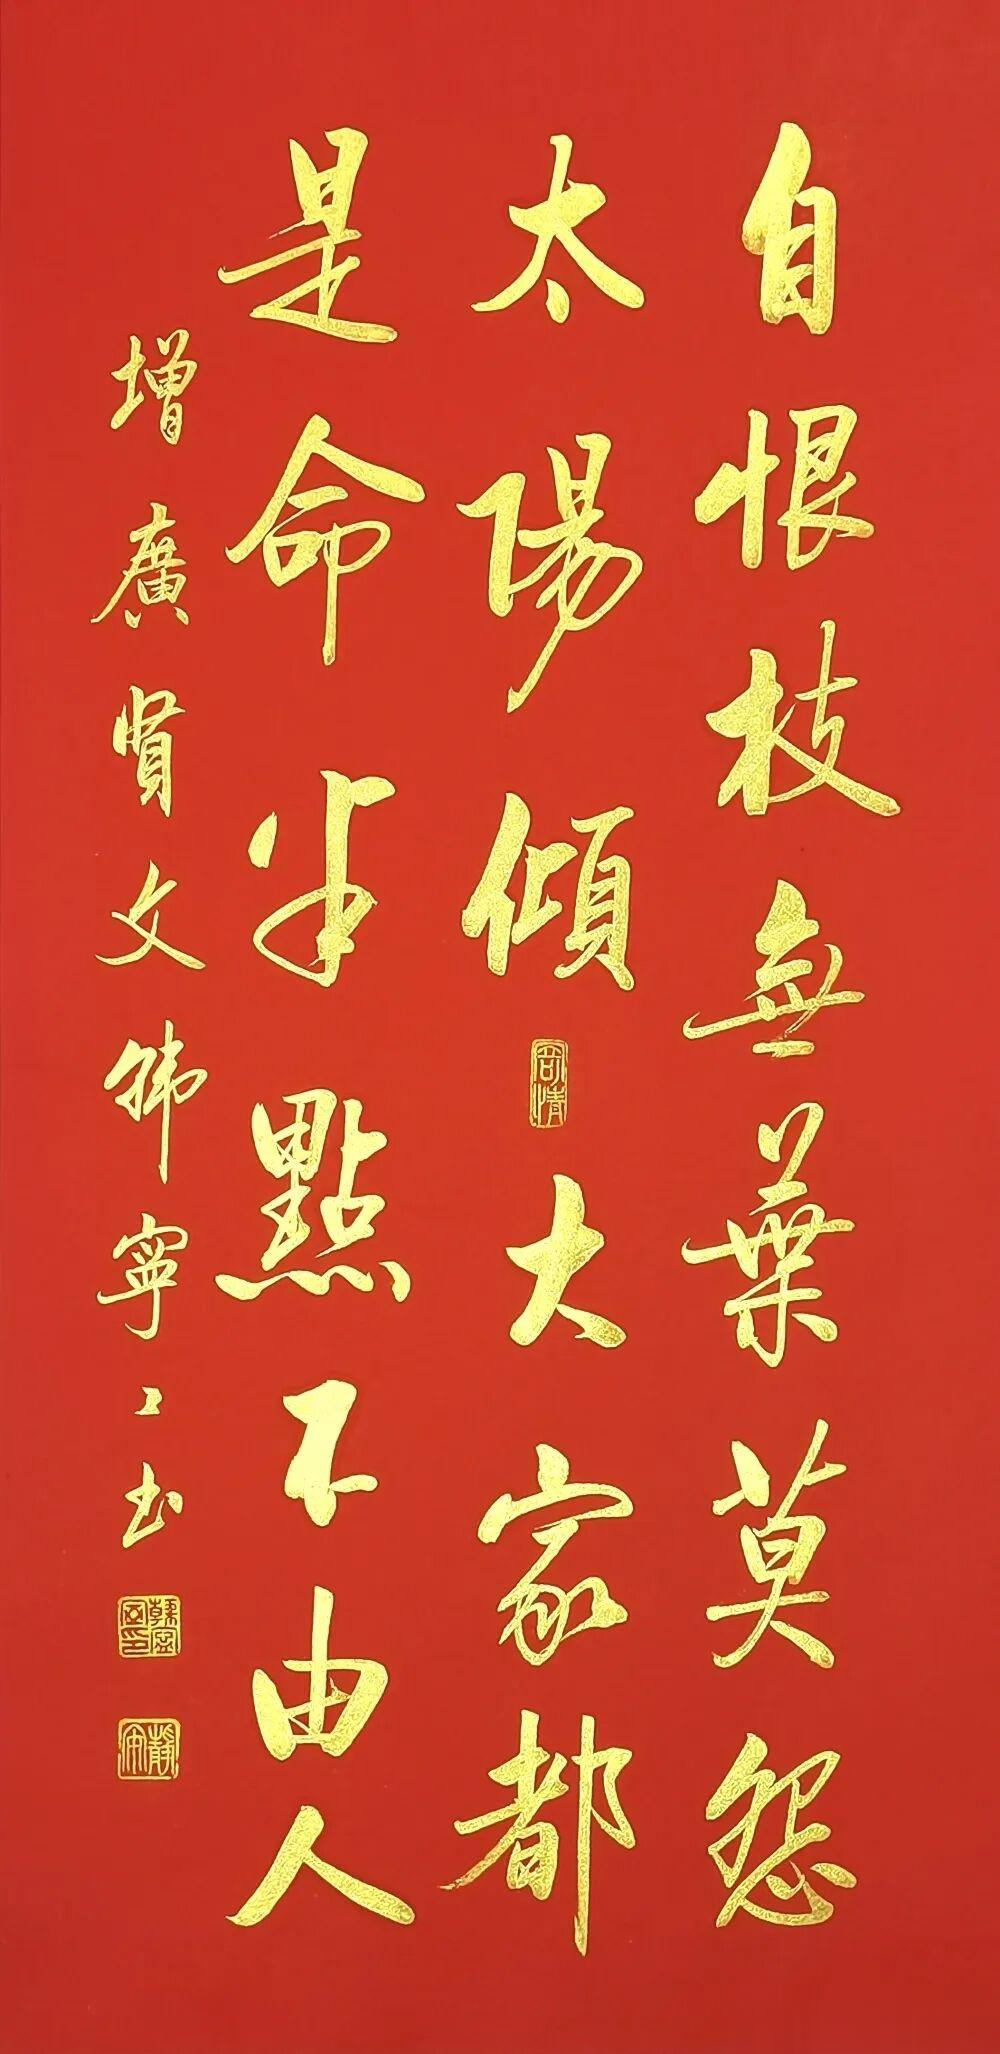 自恨枝無葉莫怨
太陽傾大家都
是命半點不由人
增廣賢文韩寧寧书